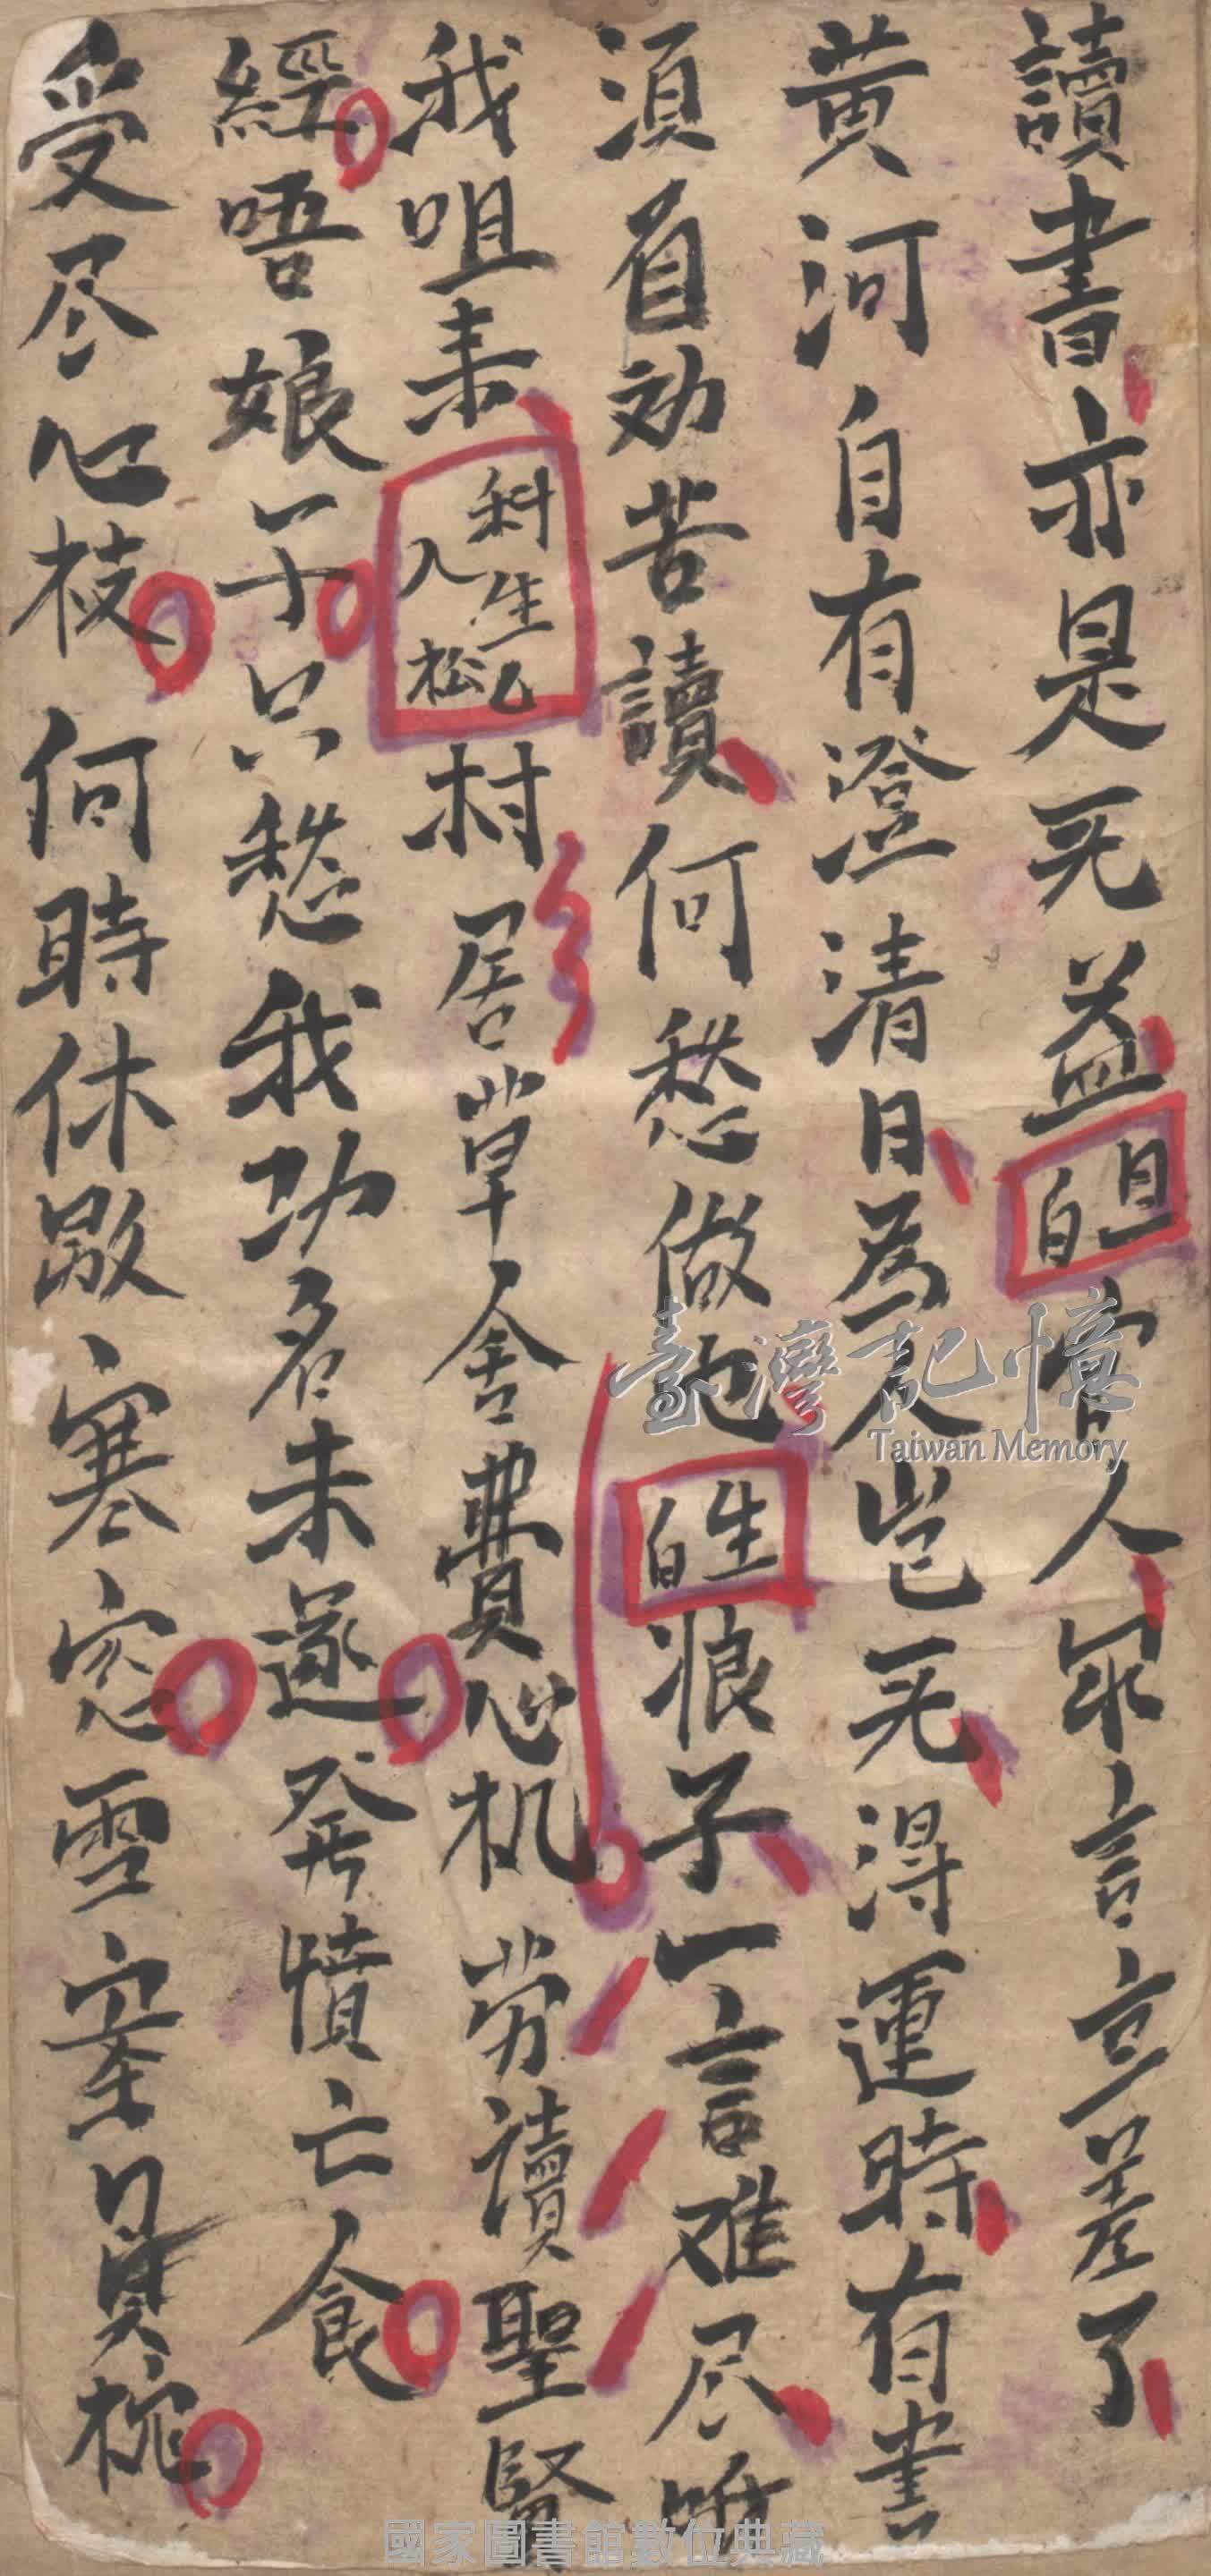 讀書亦是无益旦白官人出言立差了
黄河自有澄清日為人岂无得運時有書
須自効苦讀何愁做他生白狼子一言难尽听
我咀耒科生乙入松村居草舍費心机劳讀聖賢
經唔娘子只愁我功名未遂發憤亡食
受尽心枝何時休歇寒窓雪案員枉
臺灣記憶
Taiwan Memory
國家圖書館數位典藏